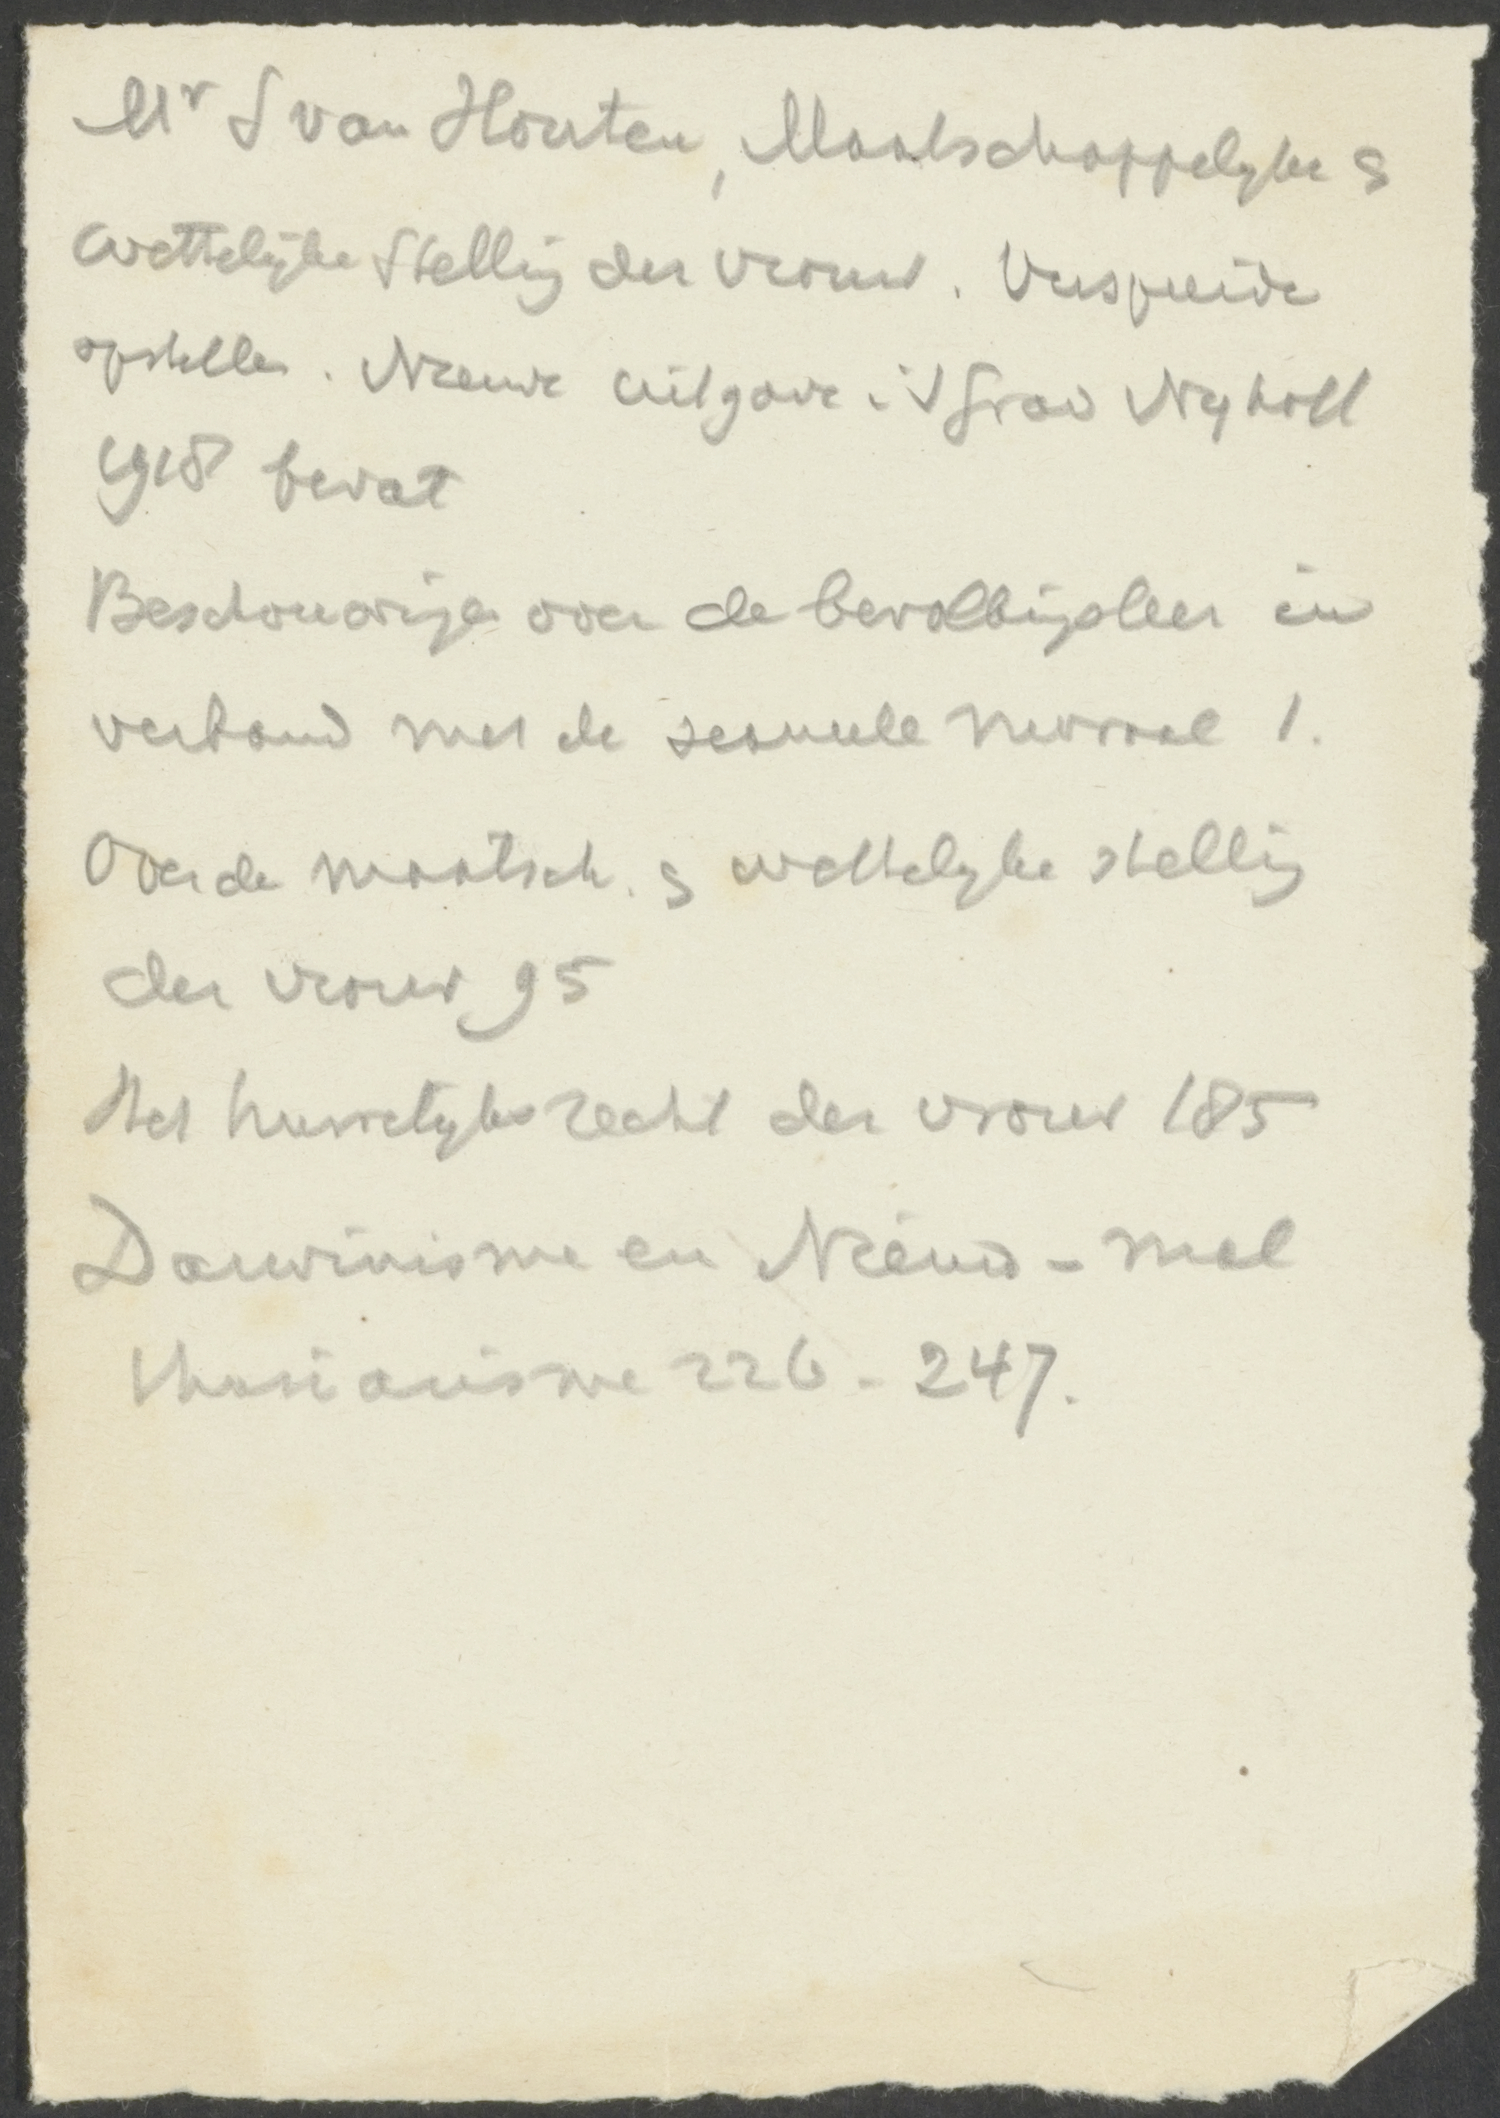 Mr S van Houten, Maatschappelyke &
wettelijke Stelling der vrouw. Verspreide
opstellen. Nieuwe uitgave. 's Grav Nyhoff
1918 bevat
Beschouwingen over de bevolkingsleer in
verband met de sexueele moraal 1.
Over de maatsch. & wettelyke stelling
der vrouw 95
Het huwelyksrecht der vrouw 185
Darwinisme en Nieuw-Mal
thusianisme 226-247.